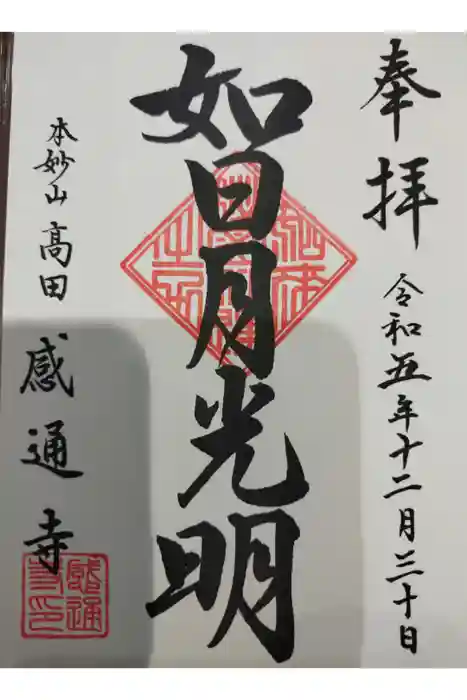 奉拝
令和五年十二月三十日
如日月光明
本妙山 高田 感通寺
感通寺印